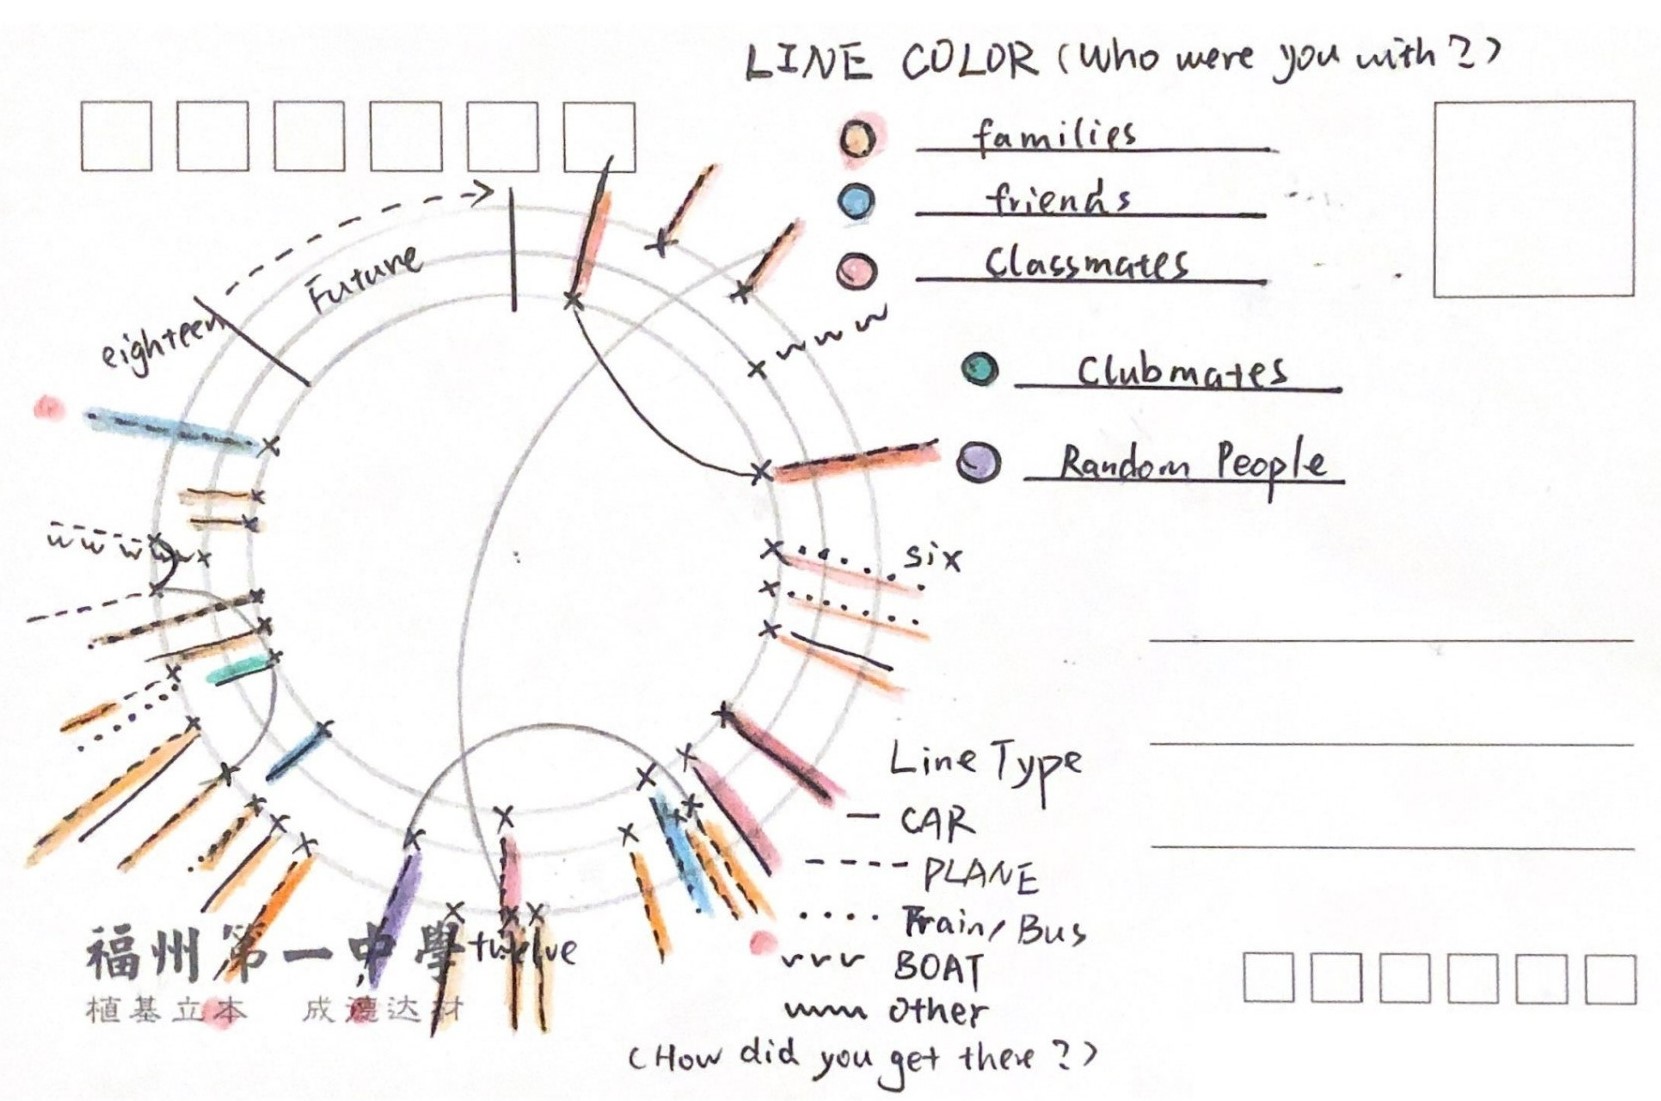 LINE COLOR (Who were you with?)
families
friends
Classmates
Clubmates
Random People
Future
eighteen
six
twelve
Line Type
CAR
PLANE
Train/Bus
BOAT
other
(How did you get there?)
福州第一中學
植基立本 成德达材